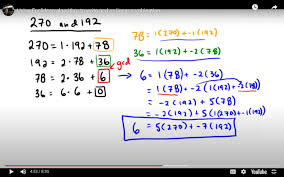 270 and 192
270 = 1·192 + 78
192 = 2·78 + 36
78 = 2·36 + 6
gcd
36 = 6·6 + 0
78 = 1(270) + -1(192)
36 = 1(192) + -2(78)
6 = 1(78) + -2(36)
= 1(78) + -2(1(192) + -2(78))
= -2(192) + 5(78)
= -2(192) + 5(1(270) + -1(192))
6 = 5(270) + -7(192)